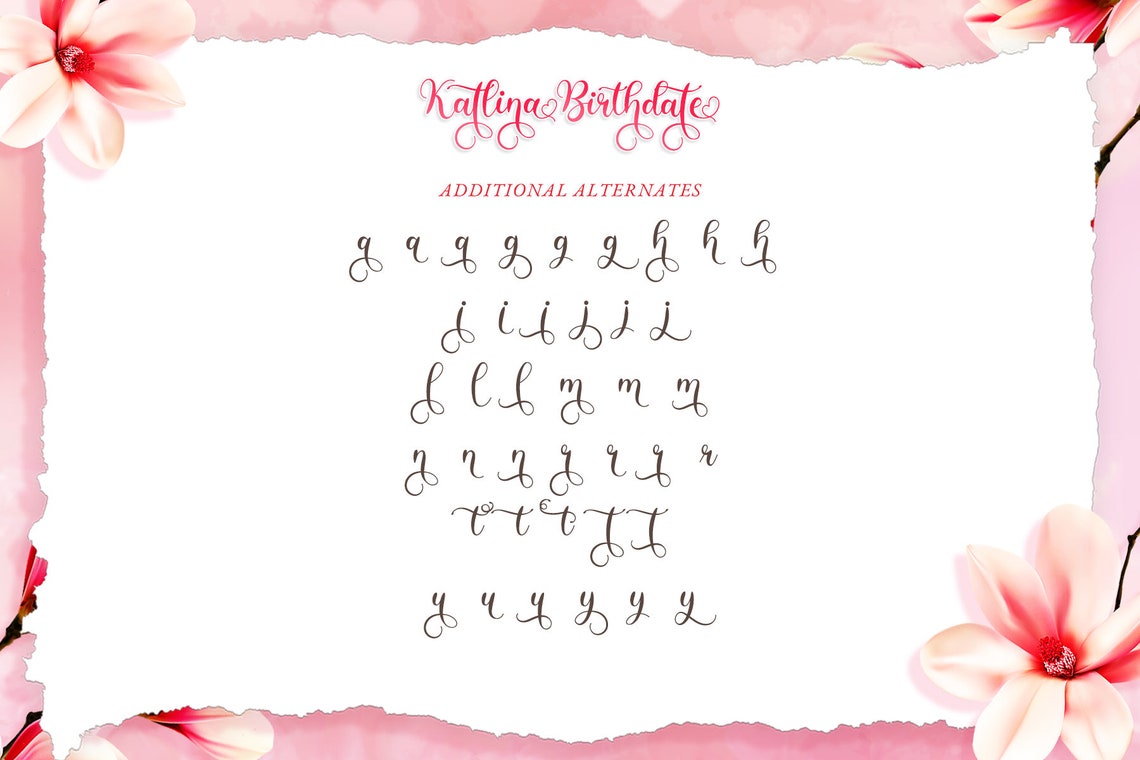 Katlina Birthdate
ADDITIONAL ALTERNATES
a a a g g g h h h
i i i j j j
l l l m m m
n n n r r r r
t t t t t
u u u y y y